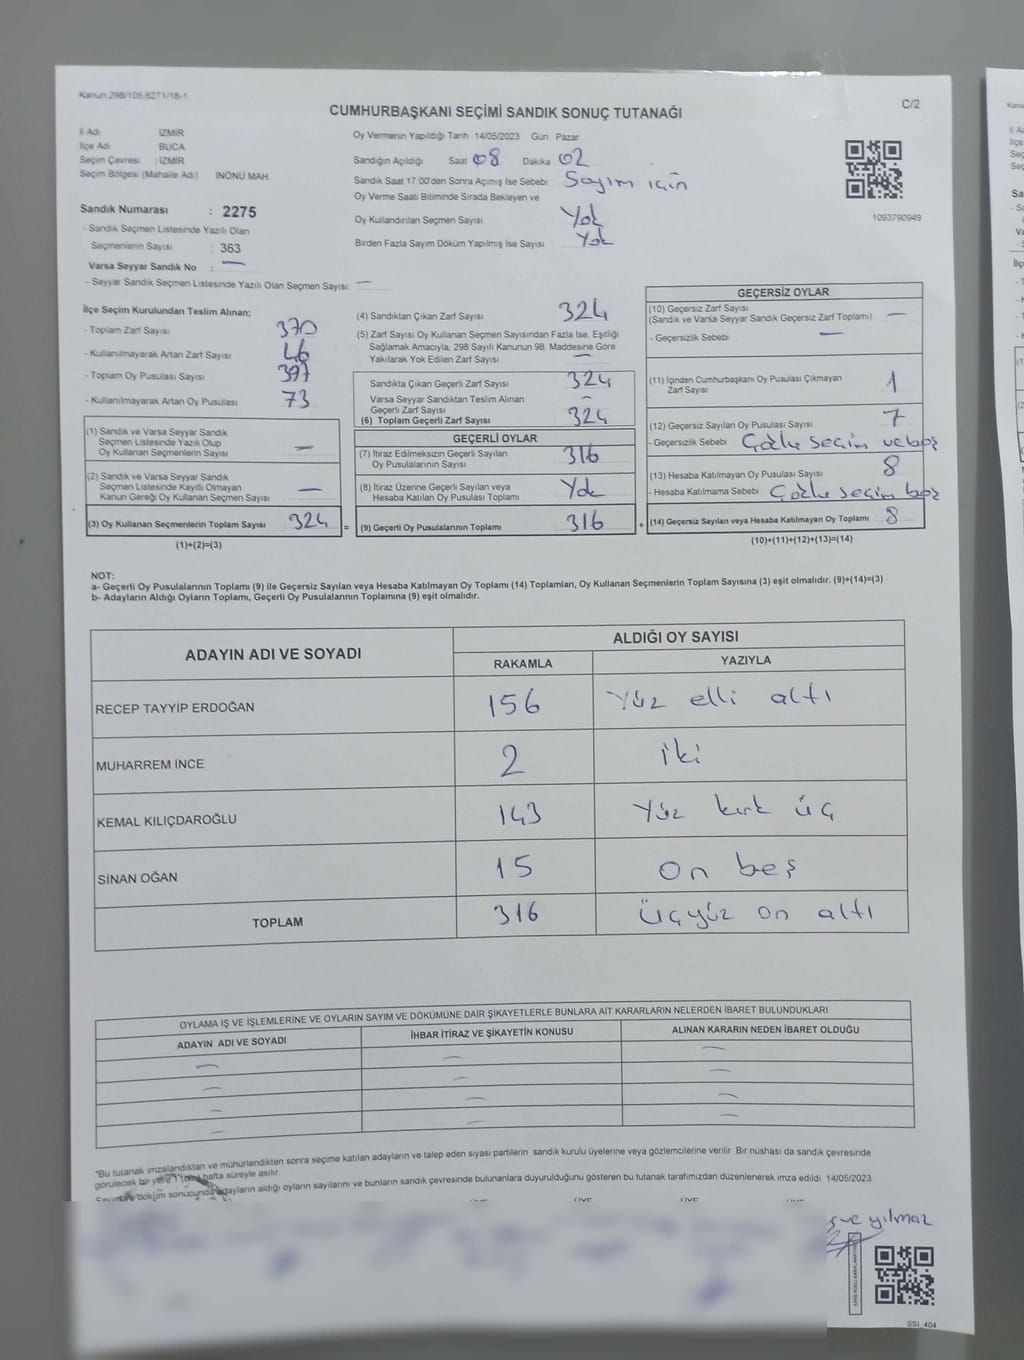 Kanun 298/105,6271/18-1
CUMHURBAŞKANI SEÇİMİ SANDIK SONUÇ TUTANAĞI
C/2
İl Adı İZMİR
İlçe Adı BUCA
Seçim Çevresi : İZMİR
Seçim Bölgesi (Mahalle Adı) İNÖNÜ MAH.
Sandık Numarası : 2275
- Sandık Seçmen Listesinde Yazılı Olan
Seçmenlerin Sayısı : 363
Varsa Seyyar Sandık No : —
- Seyyar Sandık Seçmen Listesinde Yazılı Olan Seçmen Sayısı: —
Oy Vermenin Yapıldığı Tarih 14/05/2023 Gün Pazar
Sandığın Açıldığı Saat 08 Dakika 02
Sandık Saat 17:00'den Sonra Açılmış İse Sebebi Sayım için
Oy Verme Saati Bitiminde Sırada Bekleyen ve
Oy Kullandırılan Seçmen Sayısı Yok
Birden Fazla Sayım Döküm Yapılmış İse Sayısı Yok
1093790949
İlçe Seçim Kurulundan Teslim Alınan;
- Toplam Zarf Sayısı 370
- Kullanılmayarak Artan Zarf Sayısı 46
- Toplam Oy Pusulası Sayısı 397
- Kullanılmayarak Artan Oy Pusulası 73
(1) Sandık ve Varsa Seyyar Sandık
Seçmen Listesinde Yazılı Olup
Oy Kullanan Seçmenlerin Sayısı —
(2) Sandık ve Varsa Seyyar Sandık
Seçmen Listesinde Kayıtlı Olmayan
Kanun Gereği Oy Kullanan Seçmen Sayısı —
(3) Oy Kullanan Seçmenlerin Toplam Sayısı 324 =
(1)+(2)=(3)
(4) Sandıktan Çıkan Zarf Sayısı 324
(5) Zarf Sayısı Oy Kullanan Seçmen Sayısından Fazla İse, Eşitliği
Sağlamak Amacıyla, 298 Sayılı Kanunun 98. Maddesine Göre
Yakılarak Yok Edilen Zarf Sayısı —
Sandıkta Çıkan Geçerli Zarf Sayısı 324
Varsa Seyyar Sandıktan Teslim Alınan
Geçerli Zarf Sayısı -
(6) Toplam Geçerli Zarf Sayısı 324
GEÇERLİ OYLAR
(7) İtiraz Edilmeksizin Geçerli Sayılan
Oy Pusulalarının Sayısı 316
(8) İtiraz Üzerine Geçerli Sayılan veya
Hesaba Katılan Oy Pusulası Toplamı Yok
(9) Geçerli Oy Pusulalarının Toplamı 316 +
GEÇERSİZ OYLAR
(10) Geçersiz Zarf Sayısı
(Sandık ve Varsa Seyyar Sandık Geçersiz Zarf Toplamı) —
- Geçersizlik Sebebi —
(11) İçinden Cumhurbaşkanı Oy Pusulası Çıkmayan
Zarf Sayısı 1
(12) Geçersiz Sayılan Oy Pusulası Sayısı 7
- Geçersizlik Sebebi Çoklu seçim ve boş
(13) Hesaba Katılmayan Oy Pusulası Sayısı 8
- Hesaba Katılmama Sebebi Çoklu seçim boş
(14) Geçersiz Sayılan veya Hesaba Katılmayan Oy Toplamı 8
(10)+(11)+(12)+(13)=(14)
NOT:
a- Geçerli Oy Pusulalarının Toplamı (9) ile Geçersiz Sayılan veya Hesaba Katılmayan Oy Toplamı (14) Toplamları, Oy Kullanan Seçmenlerin Toplam Sayısına (3) eşit olmalıdır. (9)+(14)=(3)
b- Adayların Aldığı Oyların Toplamı, Geçerli Oy Pusulalarının Toplamına (9) eşit olmalıdır.
ADAYIN ADI VE SOYADI
ALDIĞI OY SAYISI
RAKAMLA YAZIYLA
RECEP TAYYİP ERDOĞAN 156 Yüz elli altı
MUHARREM İNCE 2 iki
KEMAL KILIÇDAROĞLU 143 Yüz kırk üç
SİNAN OĞAN 15 On beş
TOPLAM 316 Üçyüz on altı
OYLAMA İŞ VE İŞLEMLERİNE VE OYLARIN SAYIM VE DÖKÜMÜNE DAİR ŞİKAYETLERLE BUNLARA AİT KARARLARIN NELERDEN İBARET BULUNDUKLARI
ADAYIN ADI VE SOYADI İHBAR İTİRAZ VE ŞİKAYETİN KONUSU ALINAN KARARIN NEDEN İBARET OLDUĞU
— — —
— — —
— — —
— — —
*Bu tutanak imzalandıktan ve mühürlendikten sonra seçime katılan adayların ve talep eden siyasi partilerin sandık kurulu üyelerine veya gözlemcilerine verilir. Bir nüshası da sandık çevresinde
görülecek bir yere 1 (bir) hafta süreyle asılır
döküm sonucunda adayların aldığı oyların sayılarını ve bunların sandık çevresinde bulunanlara duyurulduğunu gösteren bu tutanak tarafımızdan düzenlenerek imza edildi. 14/05/2023
yılmaz
SSİ_404